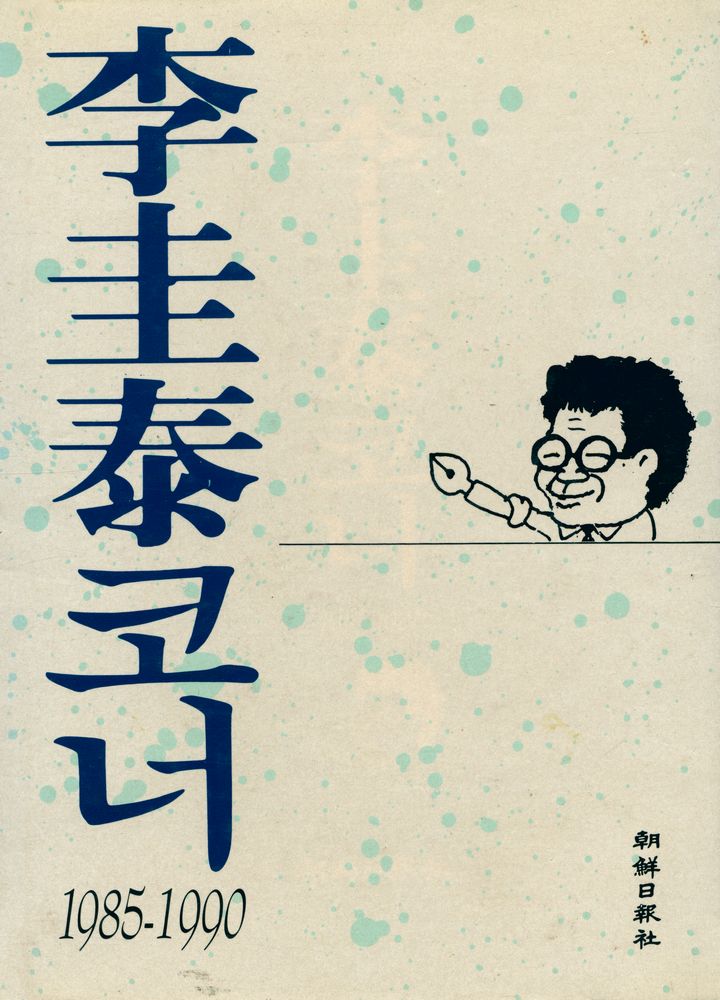 李圭泰코너
1985-1990
朝鮮日報社